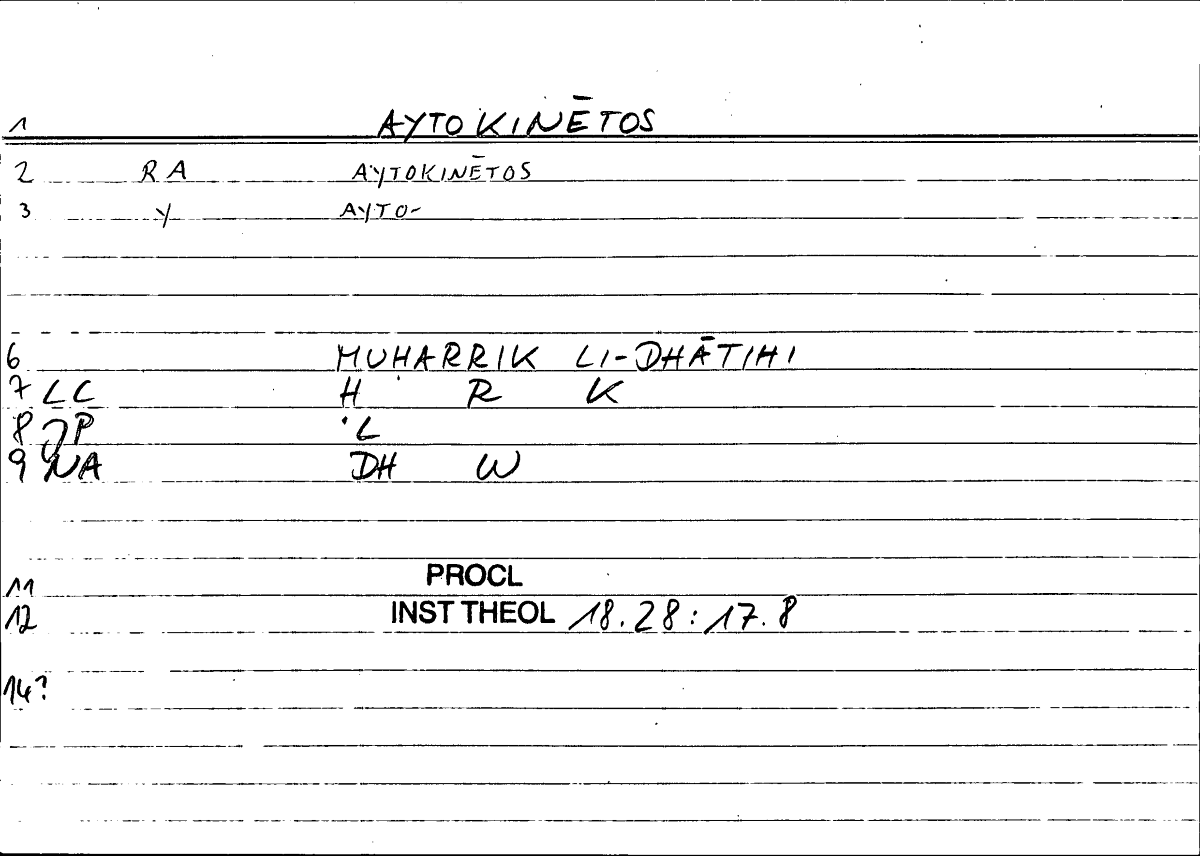 1 AYTOKINĒTOS
2 RA AYTOKINĒTOS
3 Y AYTO-
6 MUHARRIK LI-DHĀTIHI
7 LC H R K
8 JP 'L
9 NA DH W
11 PROCL
12 INST THEOL 18.28:17.8
14?